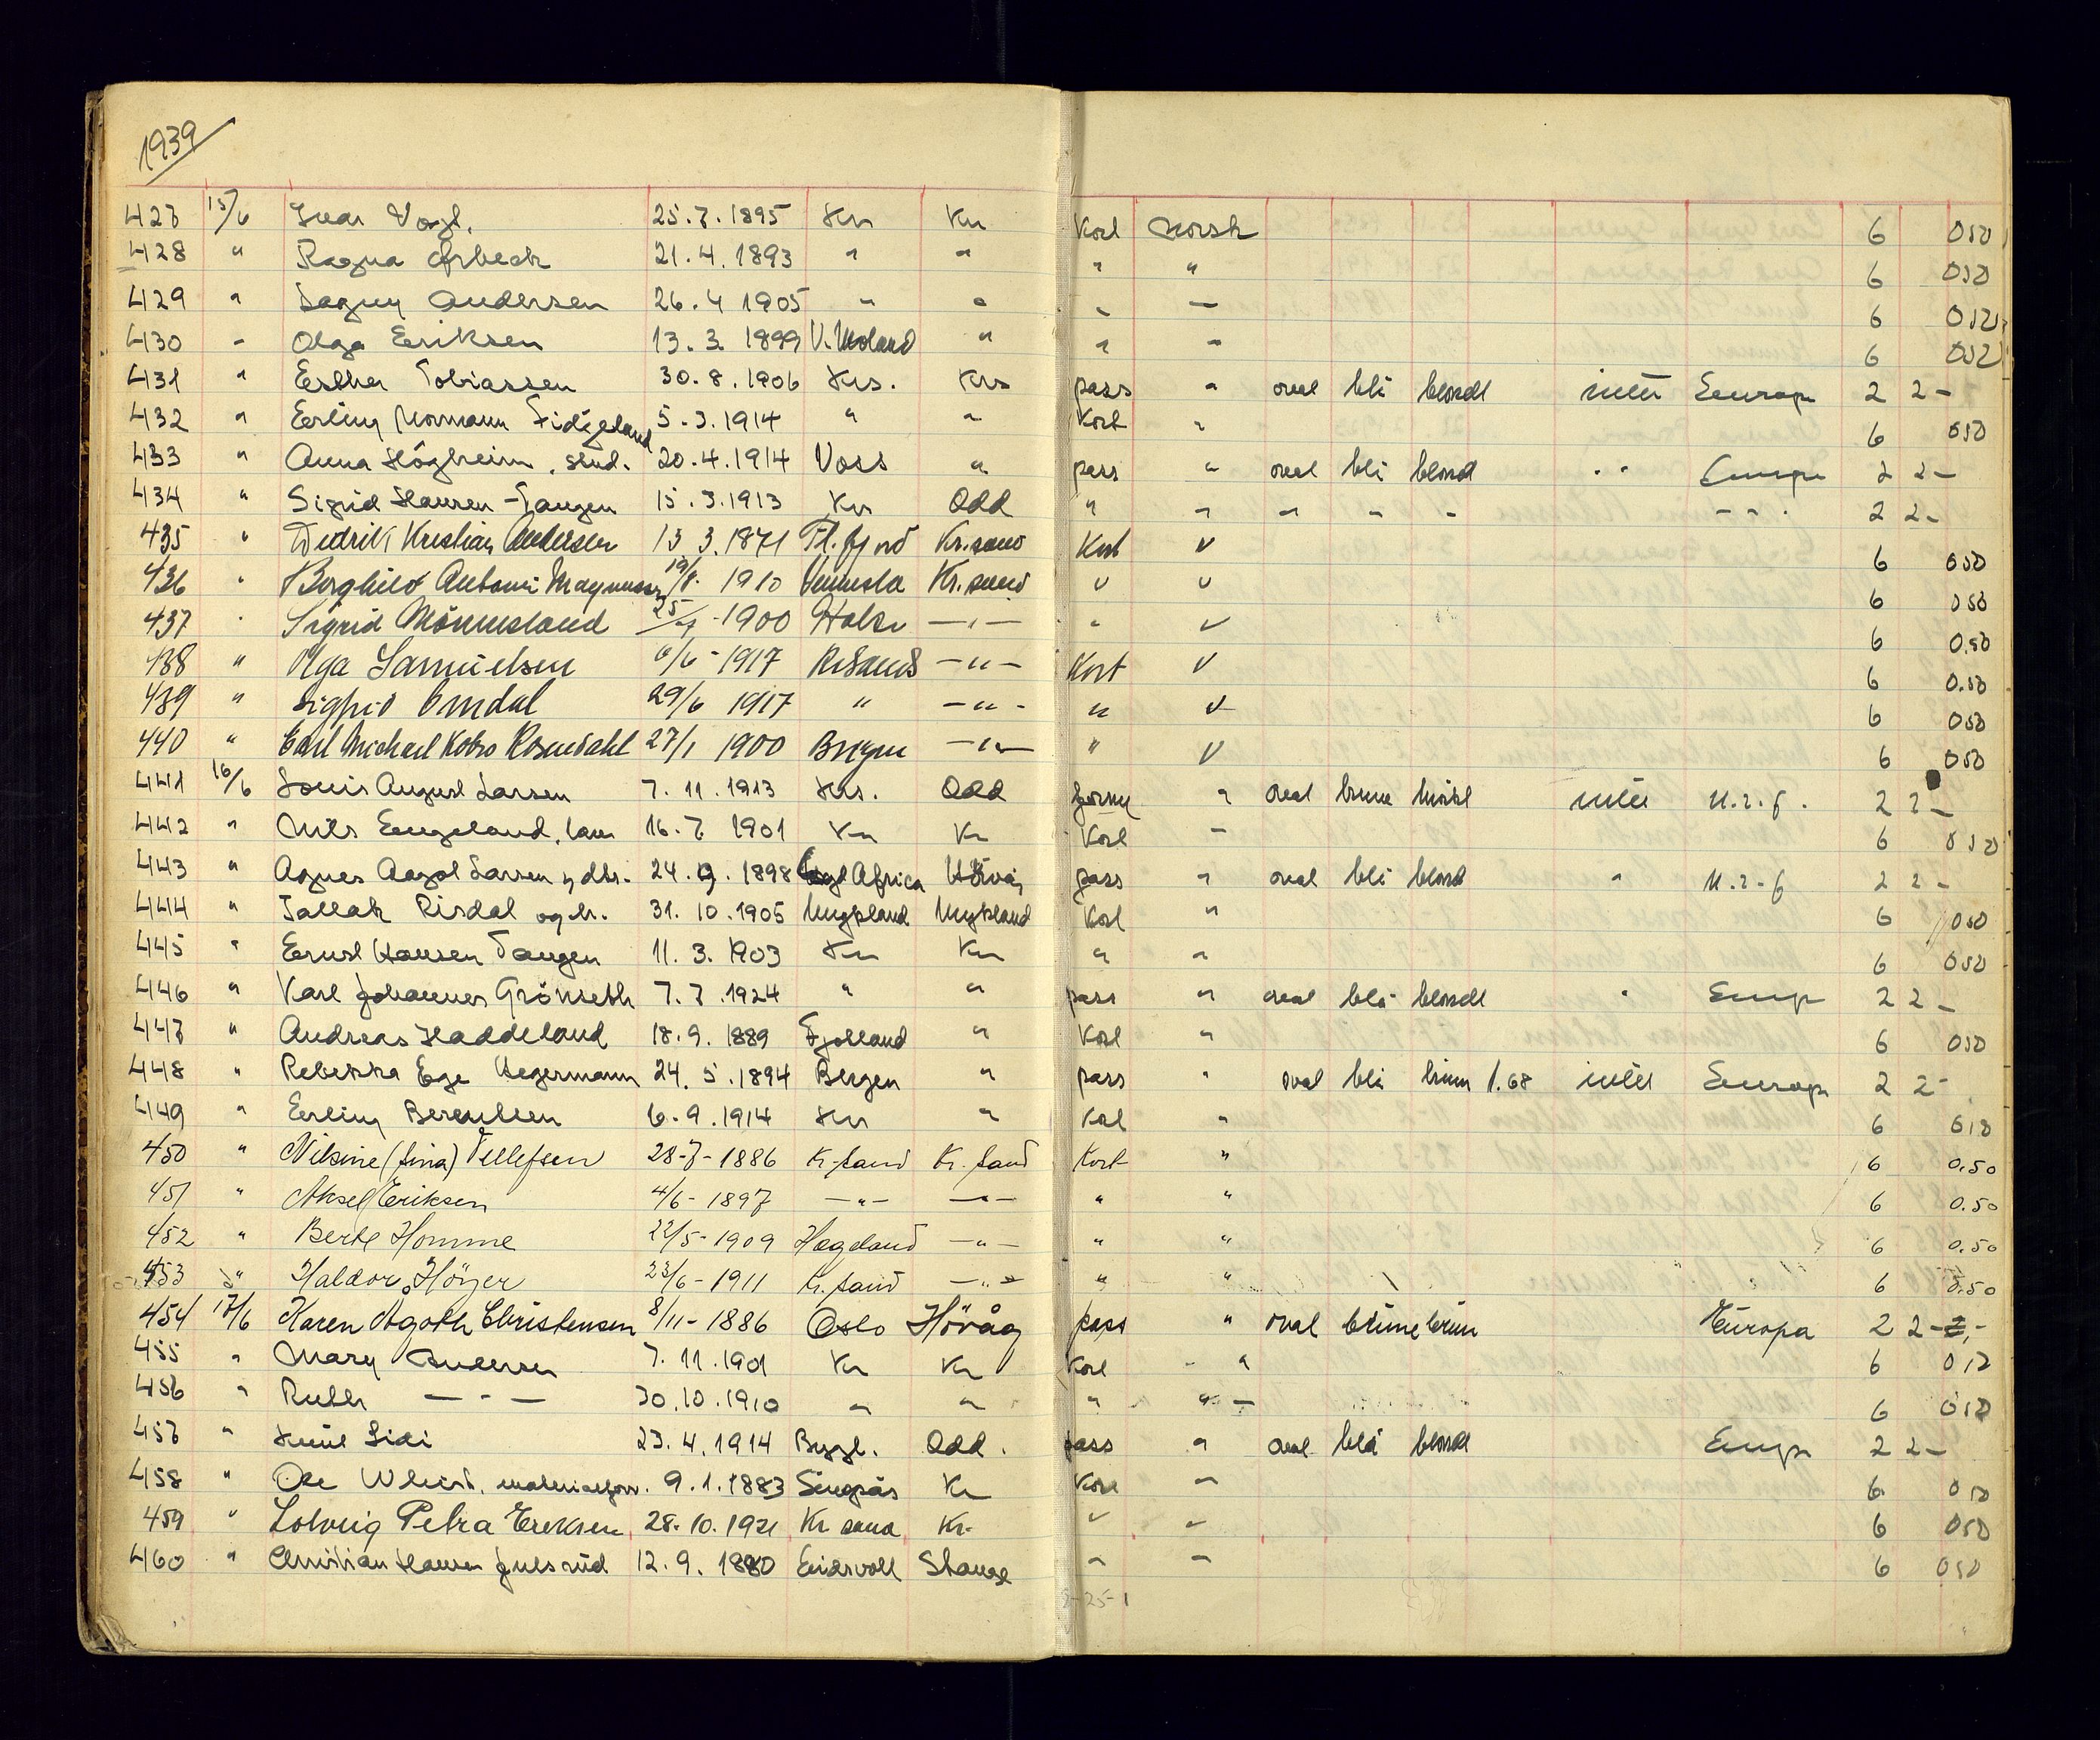 1939
427 15/6 Ivar Vogt, 25.7.1895 Krs Krs Kort norsk 6 050
428 " Ragna Arbeck 21.4.1893 " " " " 6 050
429 " Dagny Andersen 26.4 1905 " " " — 6 050
430 " Olga Eriksen 13.3.1899 V. Moland " " " 6 050
431 " Esther Tobiassen 30.8.1906 Krs. Krs pass " oval blå blondt intet Europa 2 2 -
432 " Erling Normann Fidjeland 5.3.1914 " " Kort " 6 050
433 " Anna Högheim, stud. 20.4.1914 Voss " pass " oval blå blond " Europa 2 2 -
434 " Sigrid Hansen-Tangen 15.3.1913 Krs Odd " " " " " " 2 2 -
435 " Didrik Kristian Andersen 13 3.1871 Fl.fjord Kr.sand Kort " 6 050
436 " Borghild Antonie Magnussen 19/8. 1910 Vennesla Kr. sand " " 6 050
437 " Sigrid Mönnesland 25/4 - 1900 Halse — " — " " 6 0.50
438 " Olga Samuelsen 6/6 - 1917 KrSand — " — Kort " 6 0.50
439 " Sigfrid Omdal 29/6 1917 " — " — " " 6 050
440 " Carl Michael Kobro Rosendahl 27/1 1900 Bergen — " — " " 6 050
441 16/6 Louis August Larsen 7.11.1913 Krs. Odd " oval brune mörkt intet U.S.A. 2 2 -
442 " Nils Eugeland, 16.7 1901 Kr Kr Kort — 6 050
443 " Agnes Aagot Larsen 24.9.1898 Africa Hövåg pass " oval blå blond " U.S.A 2 2 -
444 " Tallak Risdal 31.10.1905 Mykland Mykland Kort " 6 050
445 " Ernst Hansen Tangen 11.3.1903 Krs Krs " " 6 050
446 " Karl Johannes Grönseth 7.7.1924 " " pass " oval blå blondt " Europ 2 2 -
447 " Andreas Haddeland 18.9.1889 Fjotland " Kort " 6 050
448 " Rebekka Ege Hegermann 24.5.1894 Bergen " pass " oval blå brun 1.68 intet Europa 2 2 -
449 " Erling Berentsen 6.9.1914 Krs " Kort " 6 050
450 " Nilsine (Sina) Tellefsen 28-7-1886 Kr.sand Kr.sand Kort " 6 0.50
451 " Aksel Eriksen 4/6 - 1897 — " — — " — " " 6 0.50
452 " Berte Homme 22/5 - 1909 Hægeland — " — " " 6 0.50
453 " Haldor Höyer 23/6 - 1911 Kr.sand — " — " " 6 0.50
454 17/6 Karen Agoth Christensen 8/11 - 1886 Oslo Hövåg pass " oval brune brun Europa 2 2 -
455 " Mary Andersen 7.11.1901 Kr Kr Kort " 6 050
456 " Ruth — " — 30.10.1910 " " " " — 6 050
457 " Lidi 23.4.1914 Bygl. Odd. pass " oval blå blondt Europa 2 2 -
458 " Ole 9.1.1883 Singsås Kr Kort " 6 050
459 " Solveig Petra Eriksen 28.10.1921 Kr sand Kr. " " 6 050
460 " Christian Hansen Julsrud 12.9.1880 Eidsvoll Stange " — 6 050